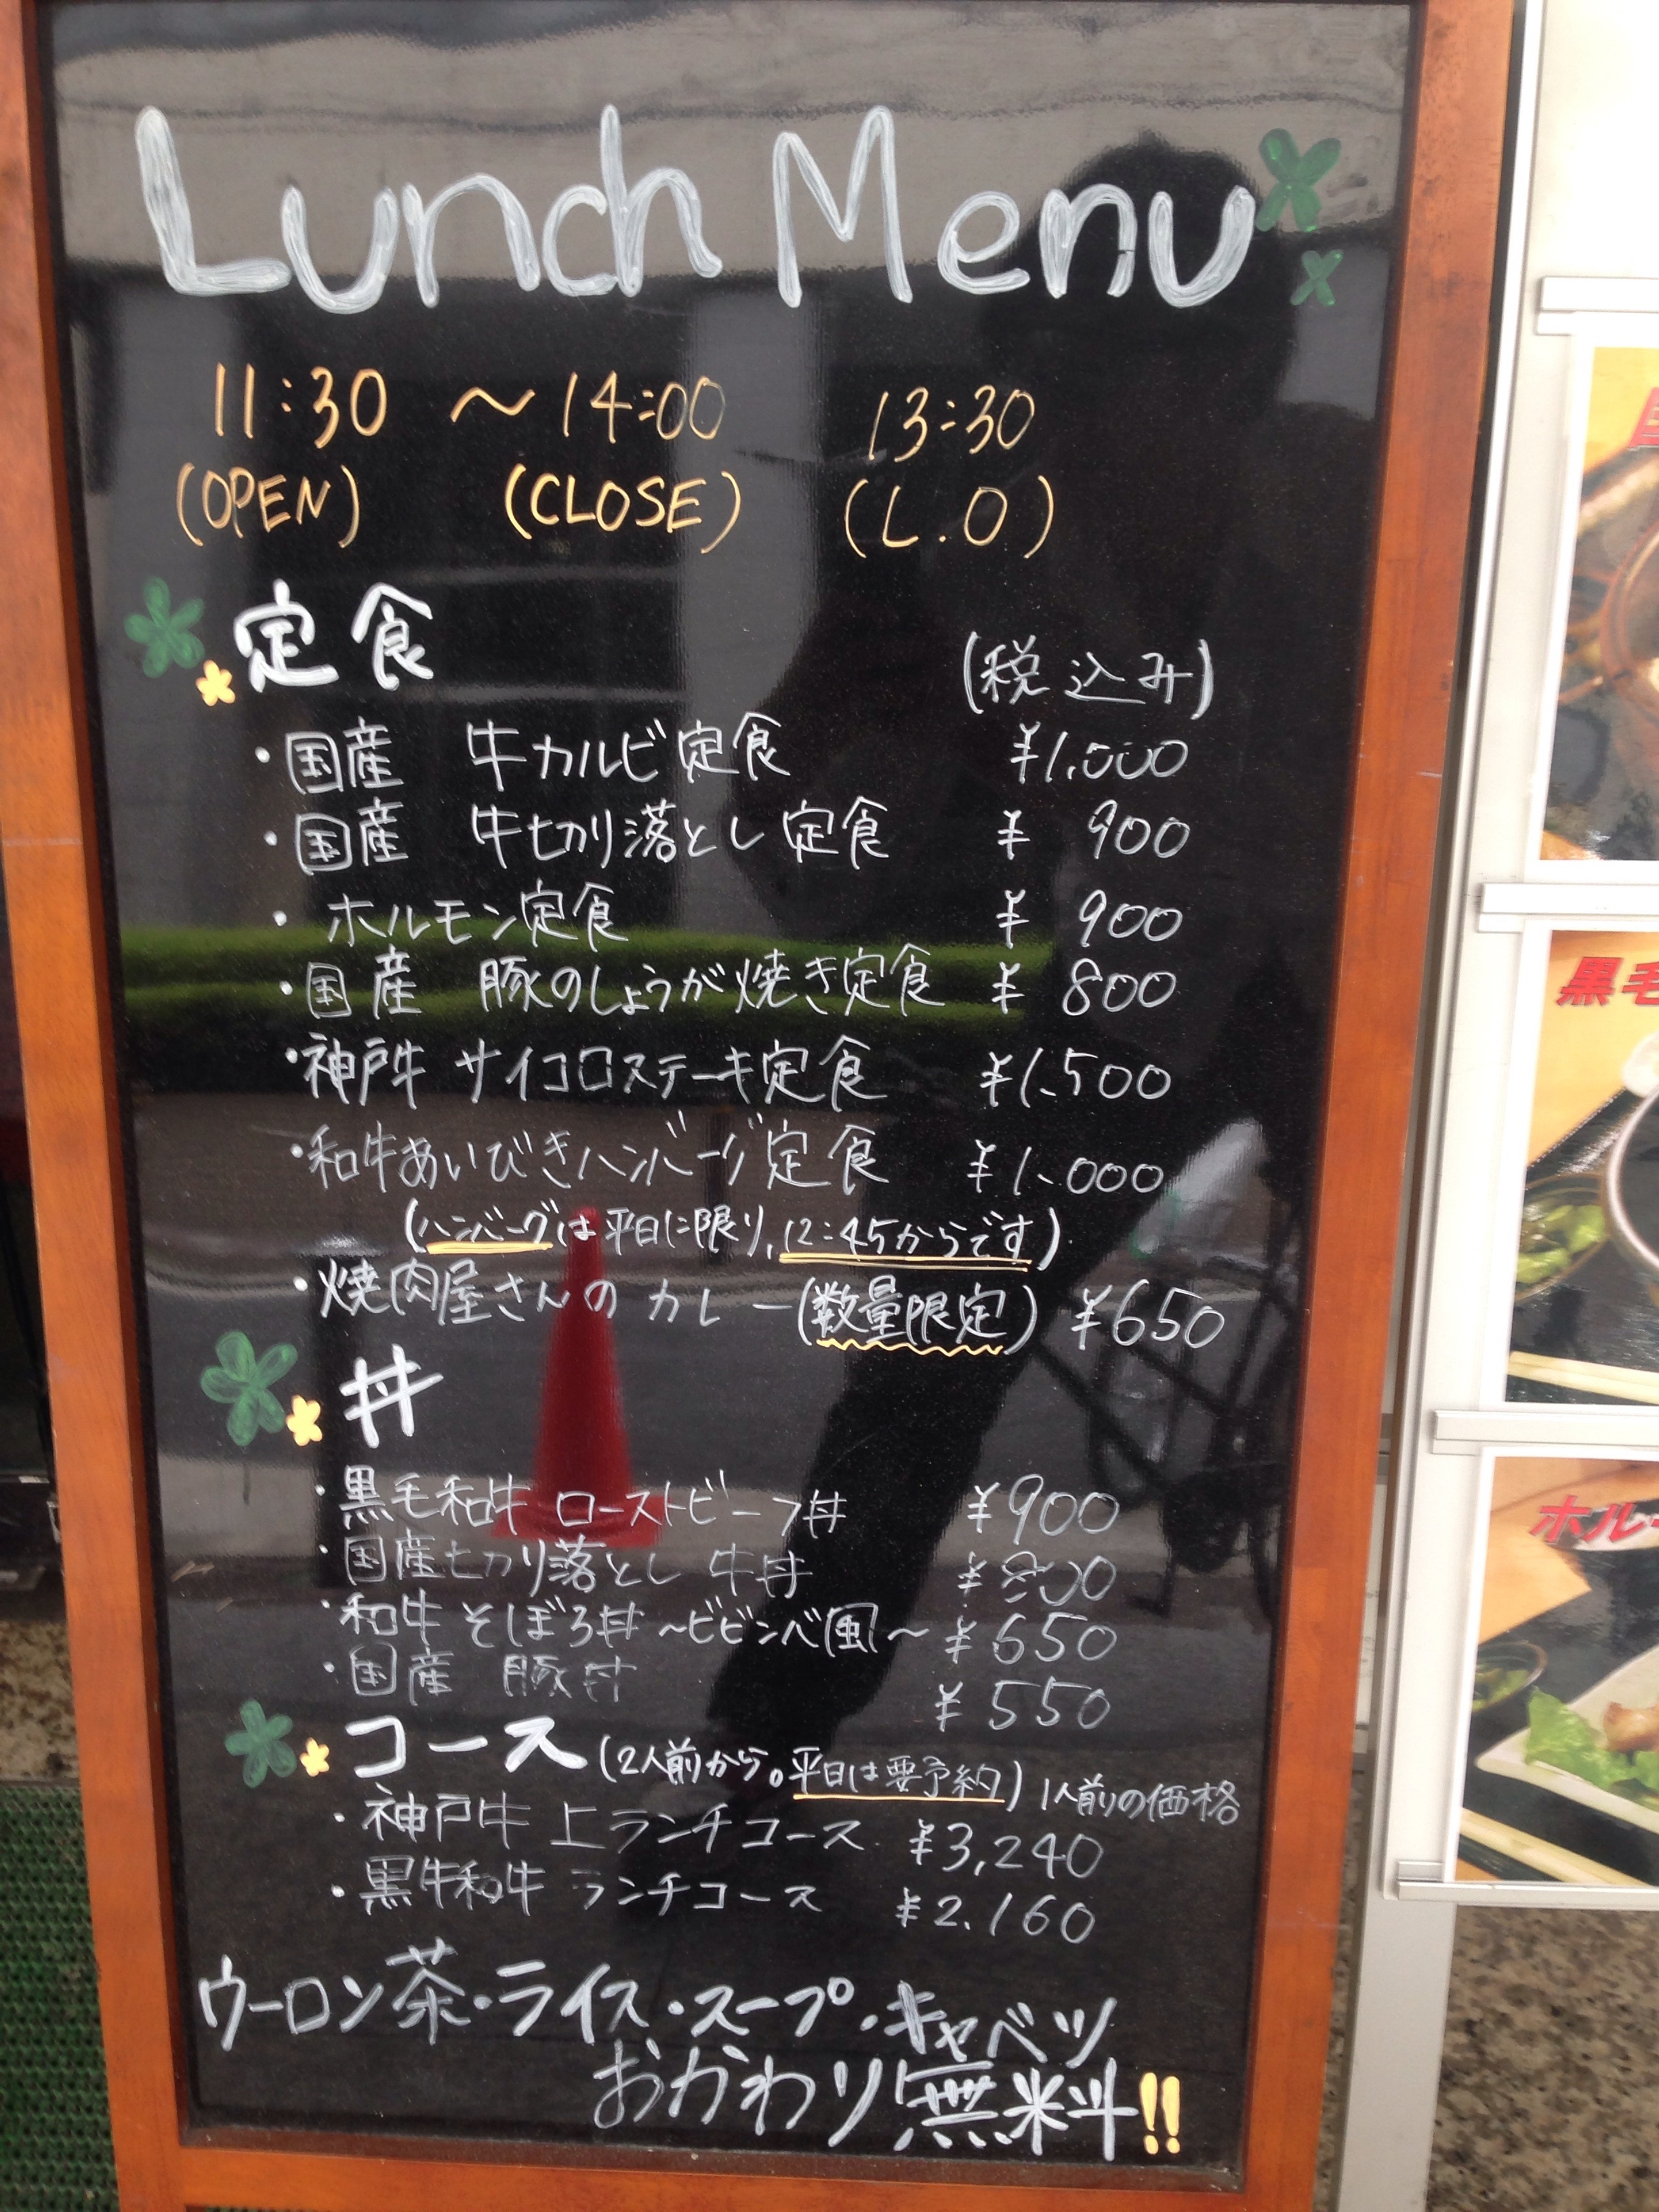 Lunch Menu
11:30 〜 14:00 13:30
(OPEN) (CLOSE) (L.O)
定食 (税込み)
・国産 牛カルビ定食 ¥1.000
・国産 牛切り落とし定食 ¥ 900
・ホルモン定食 ¥ 900
・国産 豚のしょうが焼き定食 ¥ 800
・神戸牛 サイコロステーキ定食 ¥1.500
・和牛あいびきハンバーグ定食 ¥1.000
(ハンバーグは平日に限り、12:45からです)
・焼肉屋さんの カレー(数量限定) ¥650
丼
・黒毛和牛 ローストビーフ丼 ¥900
・国産切り落とし 牛丼 ¥800
・和牛 そぼろ丼 〜ビビンバ風〜 ¥650
・国産 豚丼 ¥550
コース(2人前から。平日は要予約) 1人前の価格
・神戸牛 上ランチコース ¥3,240
・黒牛和牛 ランチコース ¥2.160
ウーロン茶・ライス・スープ・キャベツ
おかわり無料!!
黒毛
ホル